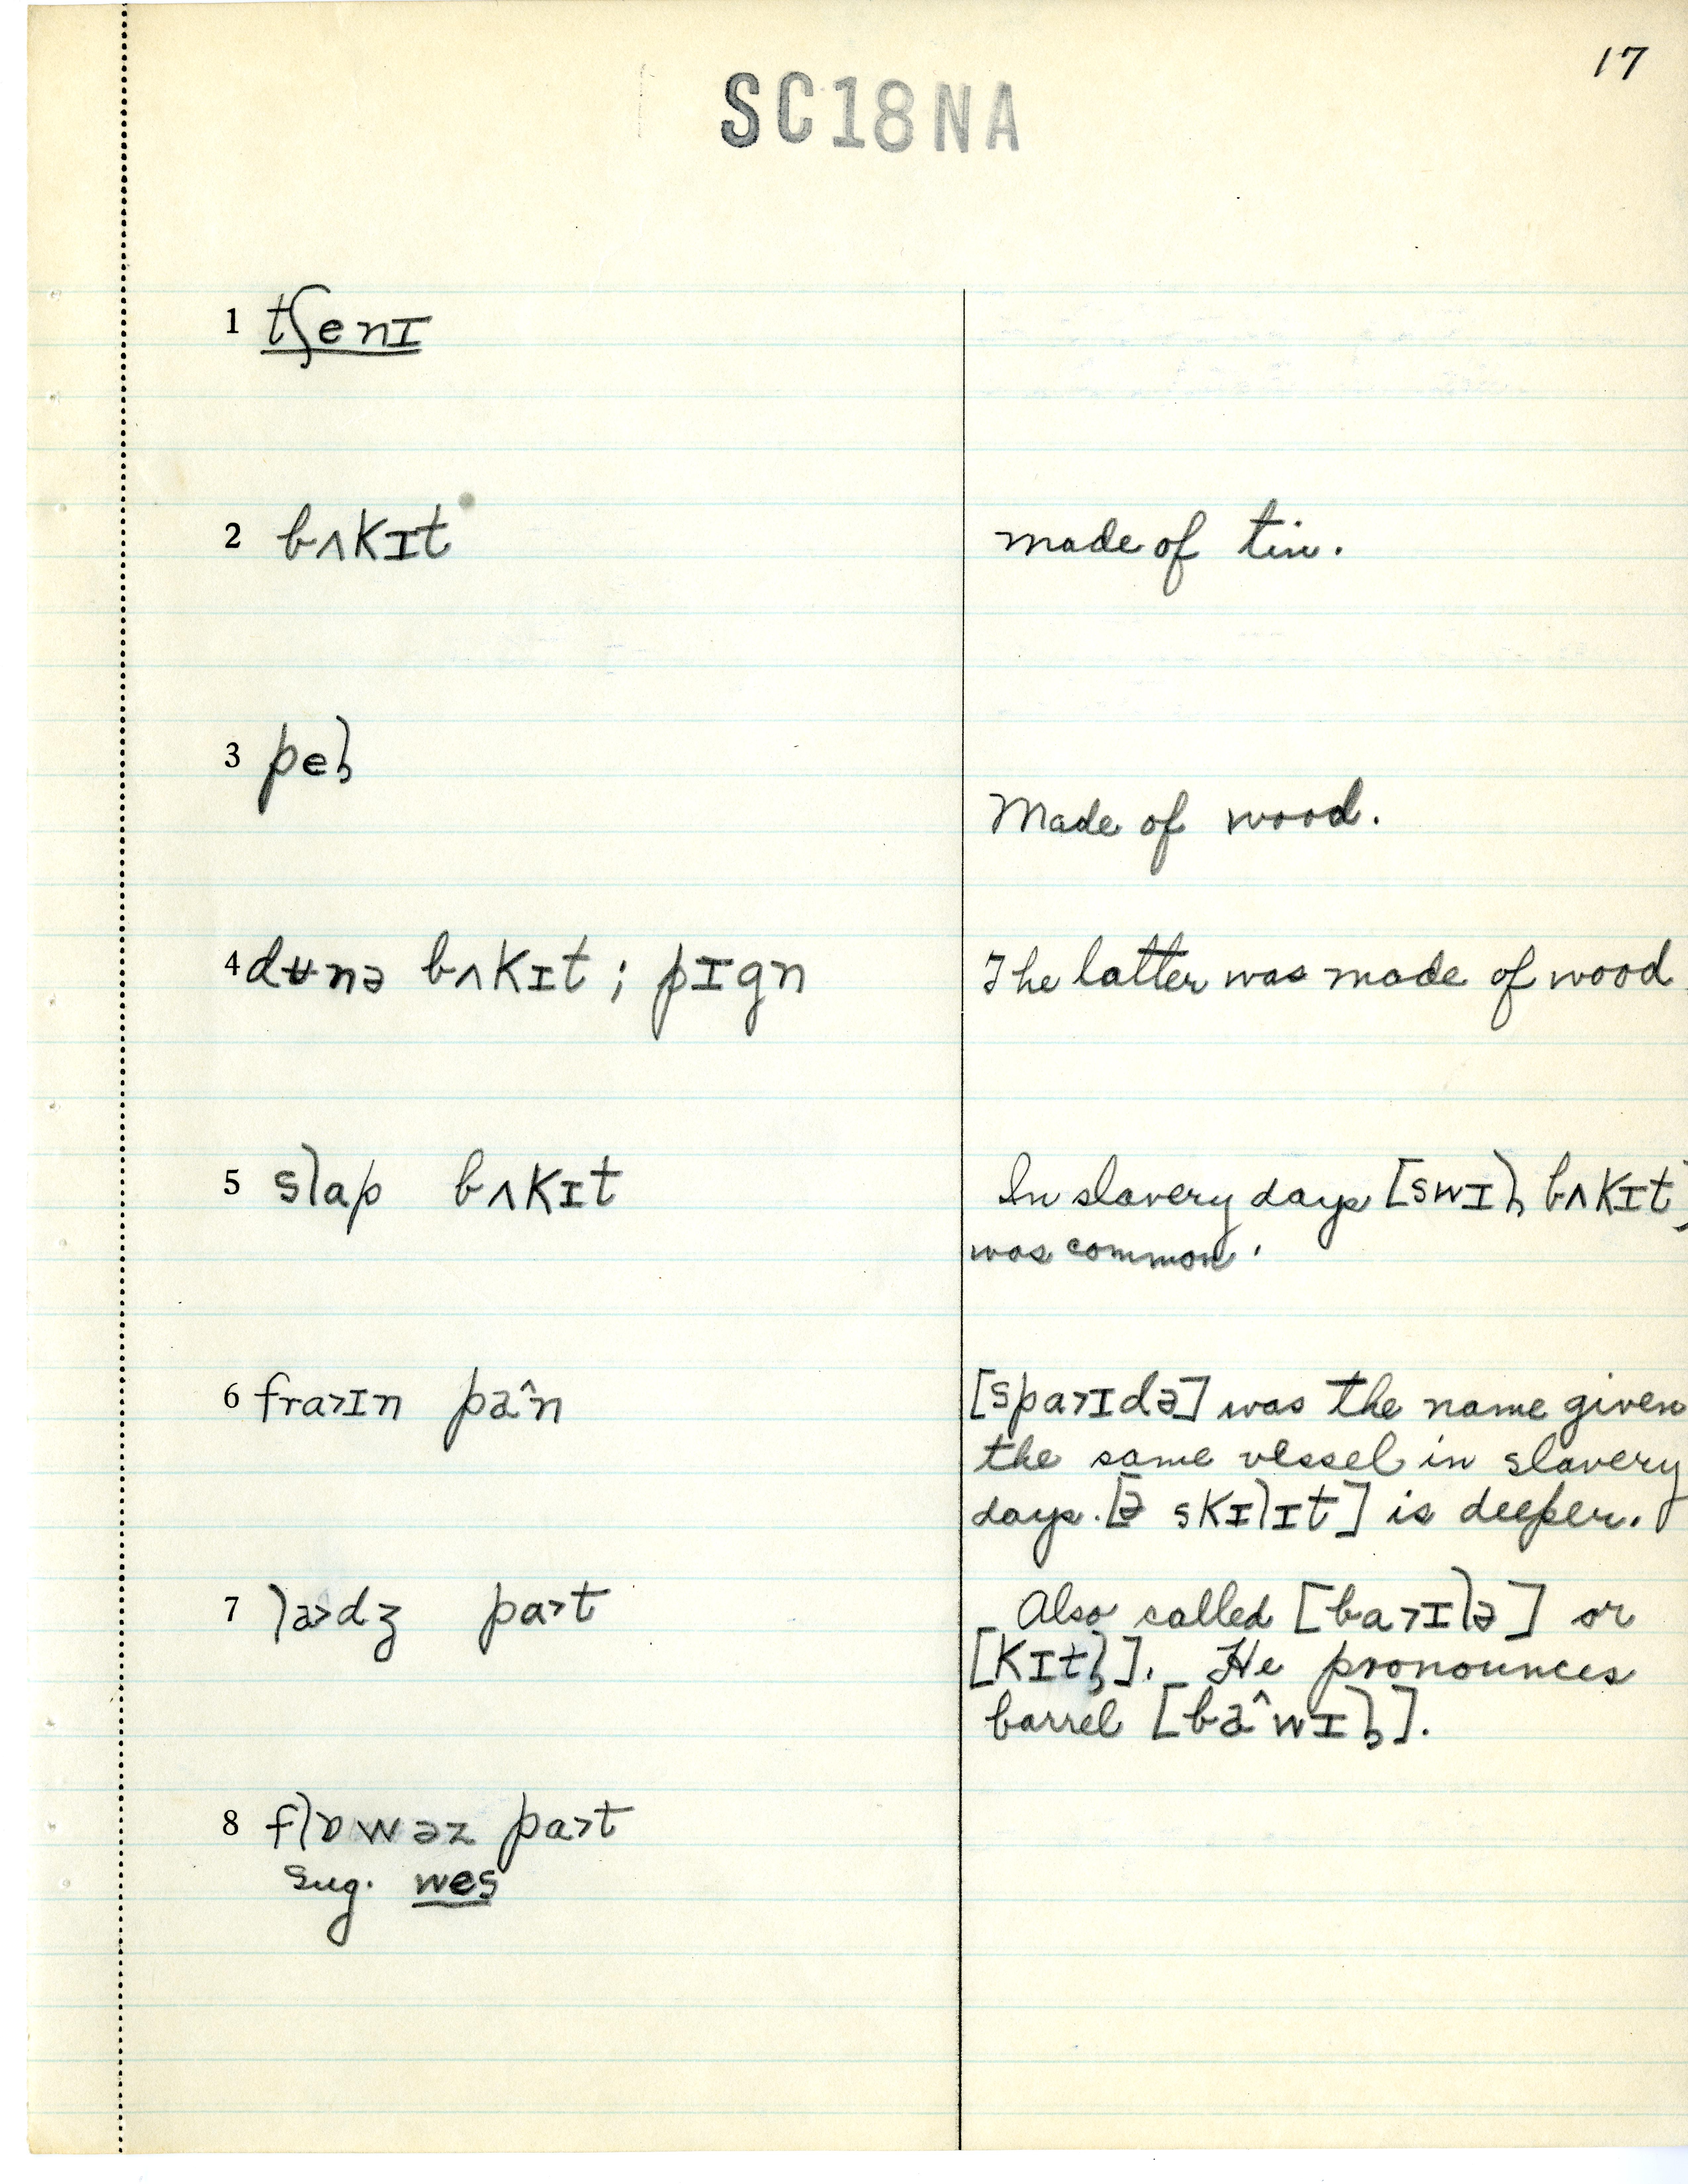 17
SC18NA
1 tʃenɪ
2 bʌkɪt made of tin.
3 pel̩
Made of wood.
4 dʉnə bʌkɪt; pɪgn The latter was made of wood.
5 slap bʌkɪt In slavery days [swɪl̩ bʌkɪt]
was common.
6 fra˃ɪn pa^n [spa˃ɪdə] was the name given
the same vessel in slavery
days. [ə skɪlɪt] is deeper.
7 la˃dʒ pa˃t Also called [ba˃ɪlə] or
[kɪtl̩]. He pronounces
barrel [ba^wɪl̩].
8 flɒwəz pa˃t
sug. wes